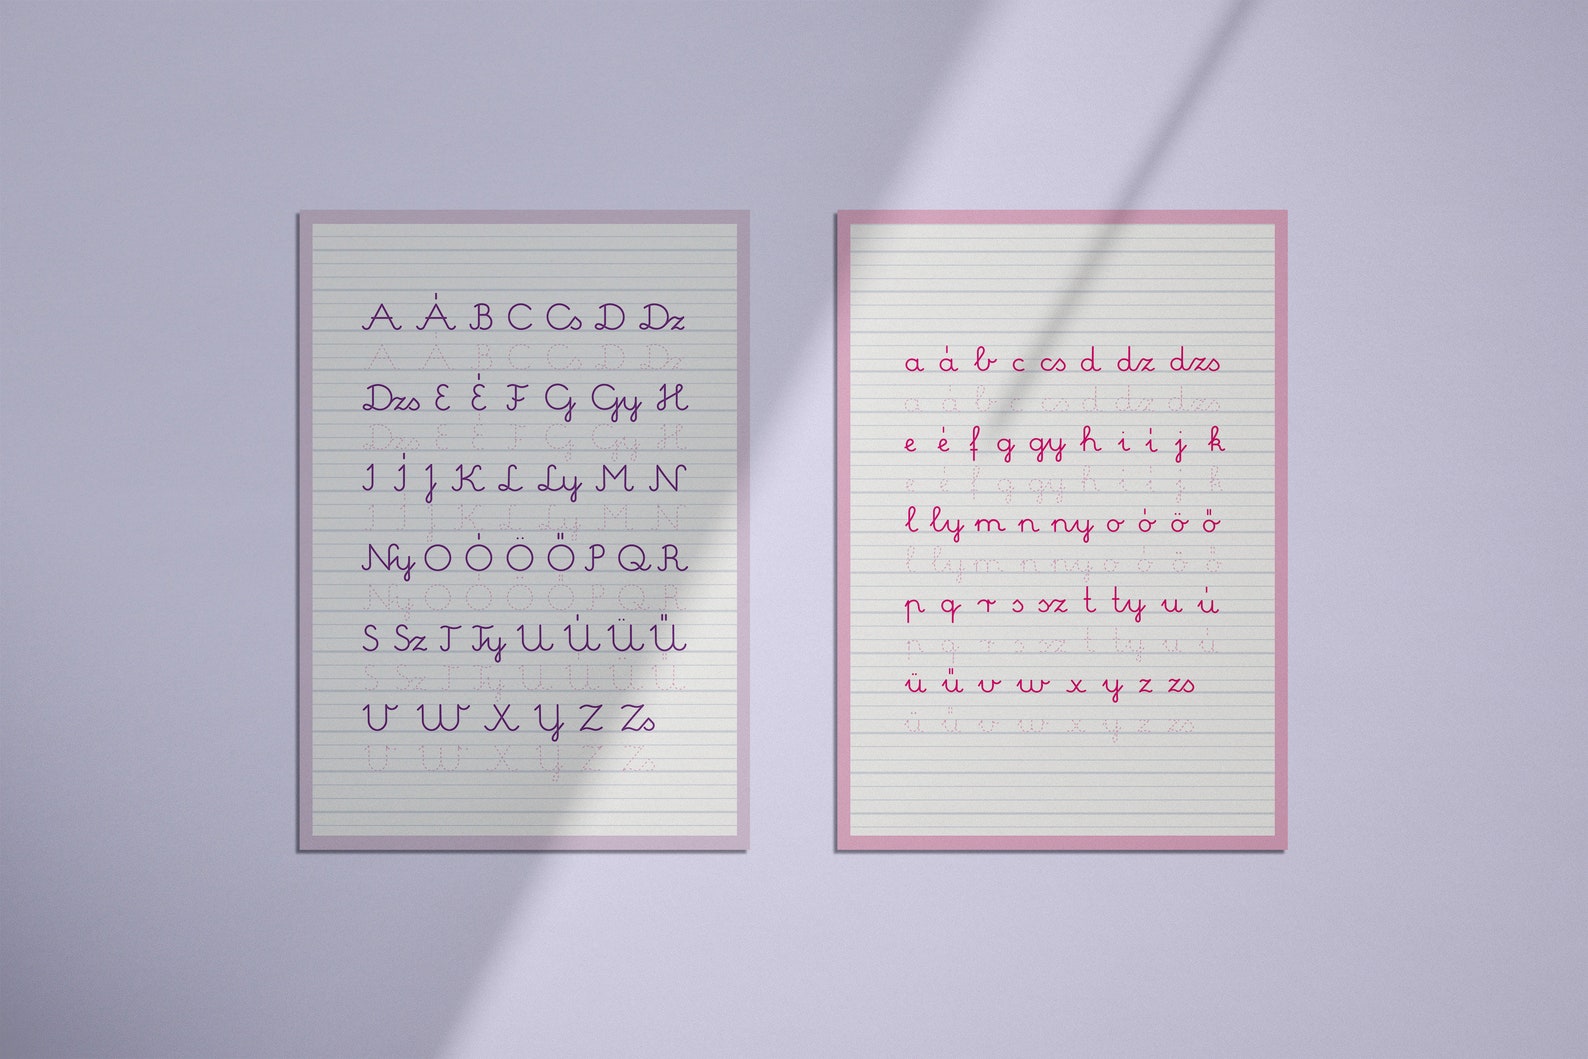 A Á B C Cs D Dz
A Á B C Cs D Dz
Dzs E É F G Gy H
Dzs E É F G Gy H
I Í J K L Ly M N
I Í J K L Ly M N
Ny O Ó Ö Ő P Q R
Ny O Ó Ö Ő P Q R
S Sz T Ty U Ú Ü Ű
S Sz T Ty U Ú Ü Ű
V W X Y Z Zs
V W X Y Z Zs
a á b c cs d dz dzs
a á b c cs d dz dzs
e é f g gy h i í j k
e é f g gy h i í j k
l ly m n ny o ó ö ő
l ly m n ny o ó ö ő
p q r s sz t ty u ú
p q r s sz t ty u ú
ü ű v w x y z zs
ü ű v w x y z zs